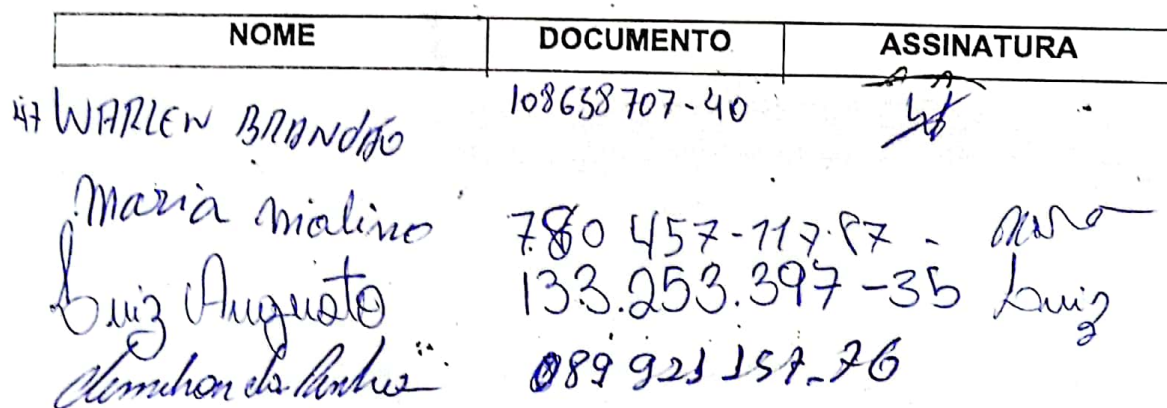 NOME DOCUMENTO ASSINATURA
47 WARLEN BRANDÃO 108658707-40
Maria 780 457-117.87 -
Luiz Augusto 133.253.397-35 Luiz
da 089 921 157-76